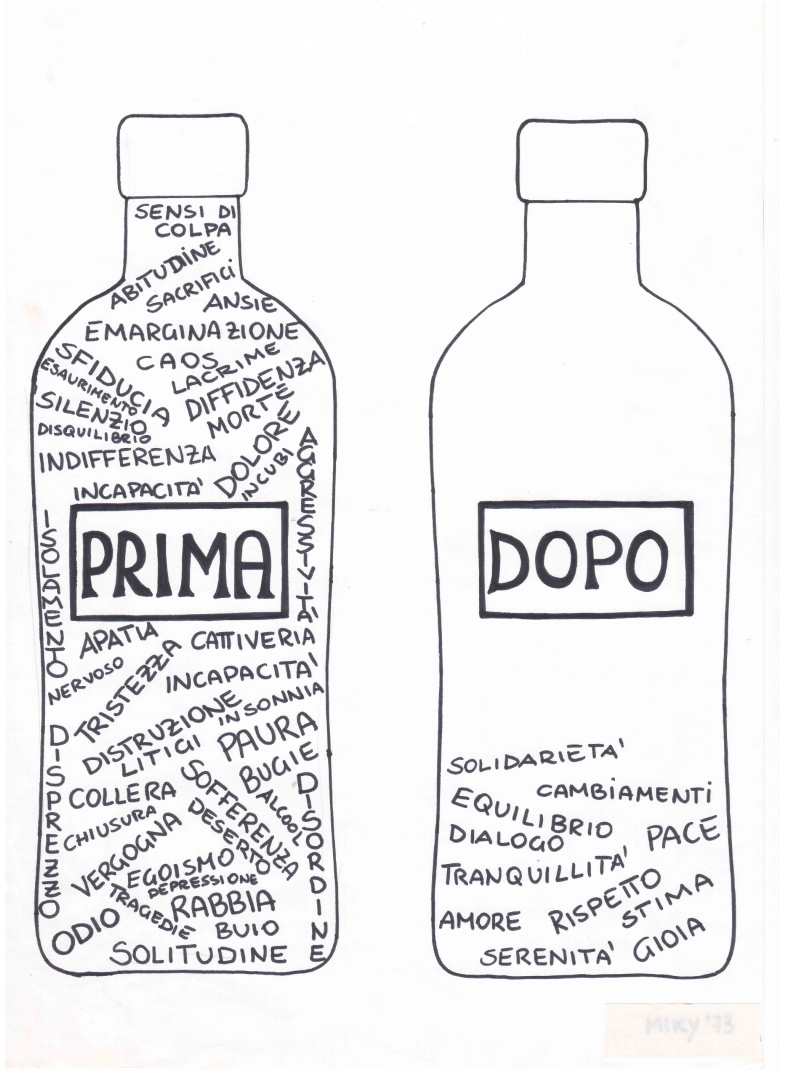 SENSI DI
COLPA
ABITUDINE
SACRIFICI
ANSIE
EMARGINAZIONE
CAOS
LACRIME
SFIDUCIA
ESAURIMENTO
DIFFIDENZA
SILENZIO
MORTE
DISQUILIBRIO
DOLORE
INCUBI
INDIFFERENZA
INCAPACITA'
AGGRESSIVITA'
ISOLAMENTO
PRIMA
APATIA
CATTIVERIA
NERVOSO
TRISTEZZA
INCAPACITA'
INSONNIA
DISTRUZIONE
LITIGI
PAURA
BUGIE
DISPREZZO
COLLERA
SOFFERENZA
ALCOOL
DISORDINE
CHIUSURA
DESERTO
VERGOGNA
EGOISMO
DEPRESSIONE
TRAGEDIE
RABBIA
ODIO
BUIO
SOLITUDINE
DOPO
SOLIDARIETA'
CAMBIAMENTI
EQUILIBRIO
DIALOGO
PACE
TRANQUILLITA'
AMORE
RISPETTO
STIMA
SERENITA'
GIOIA
MIKY '73